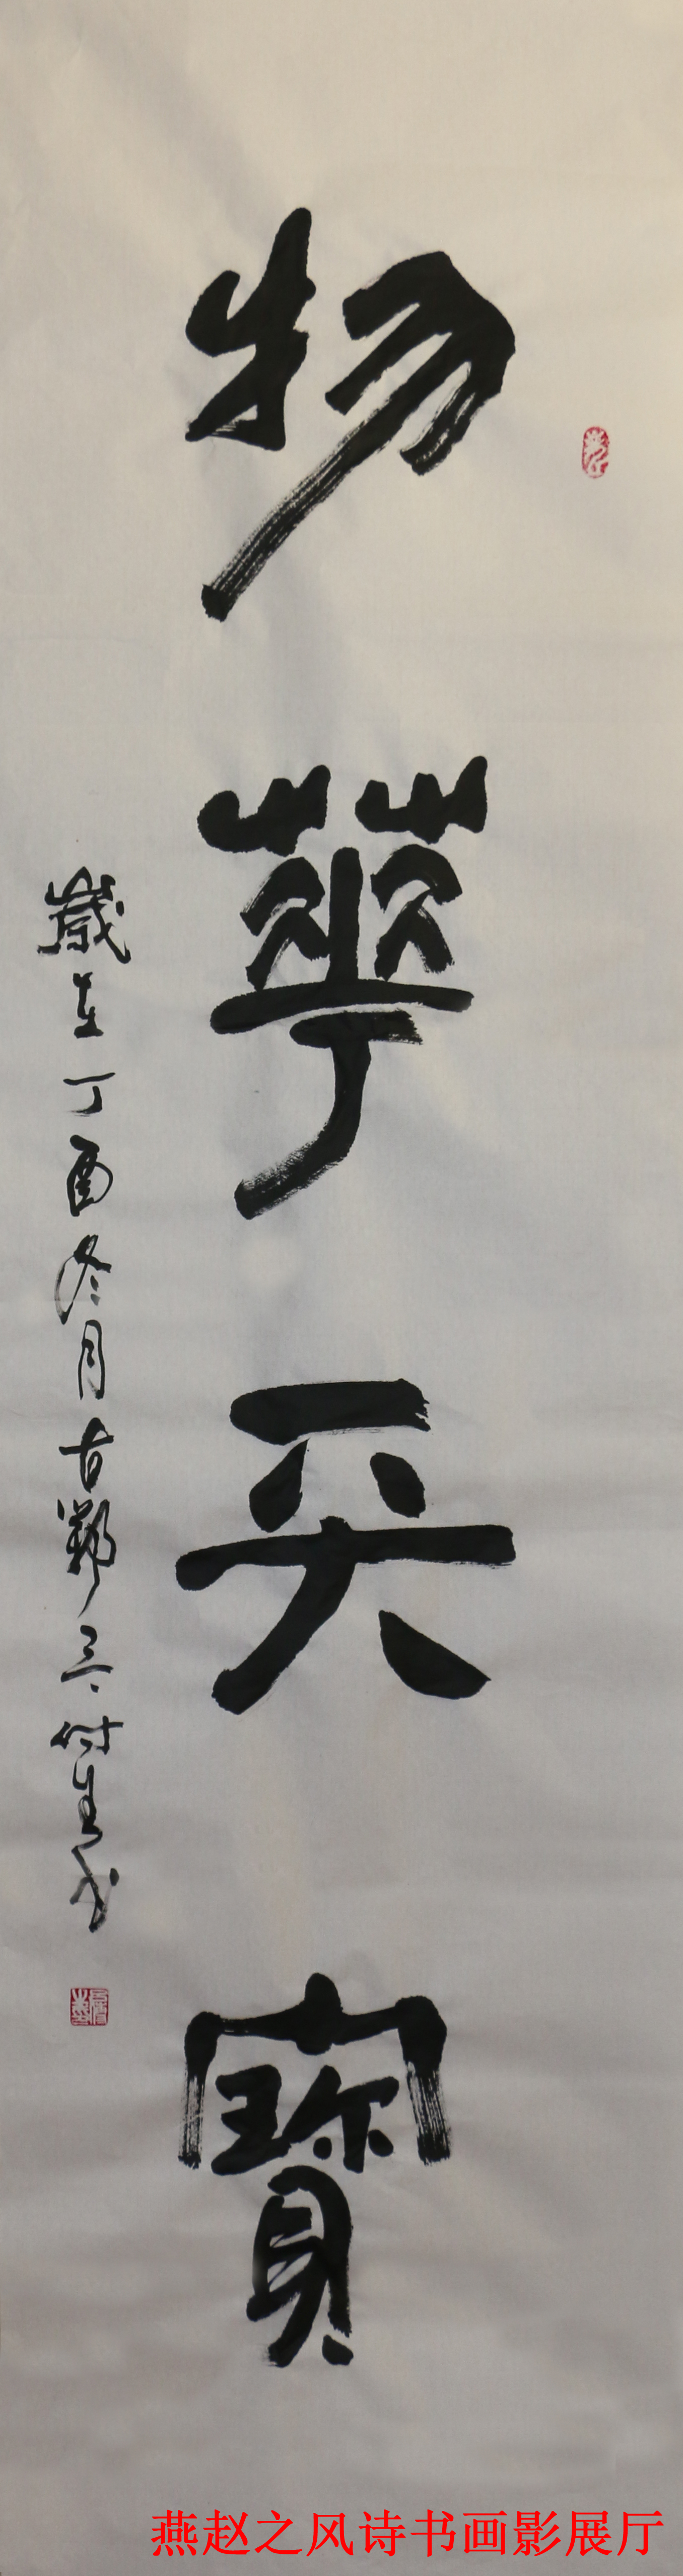 物華天寶
歲在丁酉冬月古鄴
付生書
燕赵之风诗书画影展厅